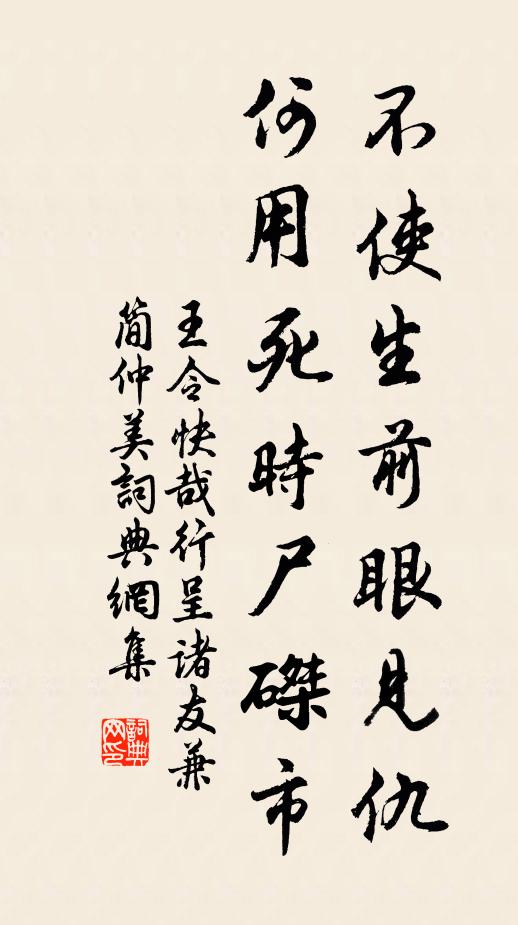 不使生前眼見仇
何用死時尸磔市
王令快哉行呈諸友兼
簡仲美詞典網集
詞典
网印